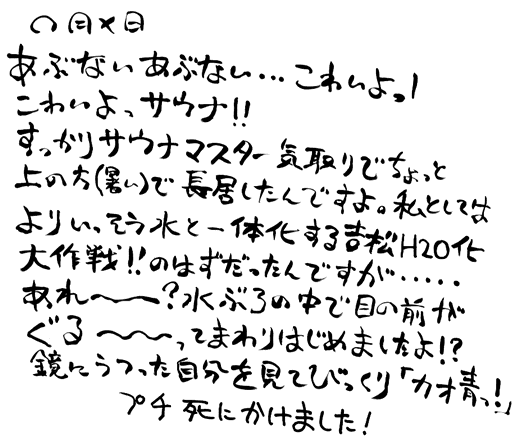 ○月×日
あぶないあぶない…こわいよっ!
こわいよっサウナ!!
すっかりサウナマスター気取りでちょっと
上の方(暑い)で長居したんですよ。私としては
よりいっそう水と一体化する吉松H2O化
大作戦!!のはずだったんですが‥‥‥
あれ〜〜?水ぶろの中で目の前が
ぐる〜〜ってまわりはじめましたよ!?
鏡にうつった自分を見てびっくり「カオ青っ!」
プチ死にかけました!